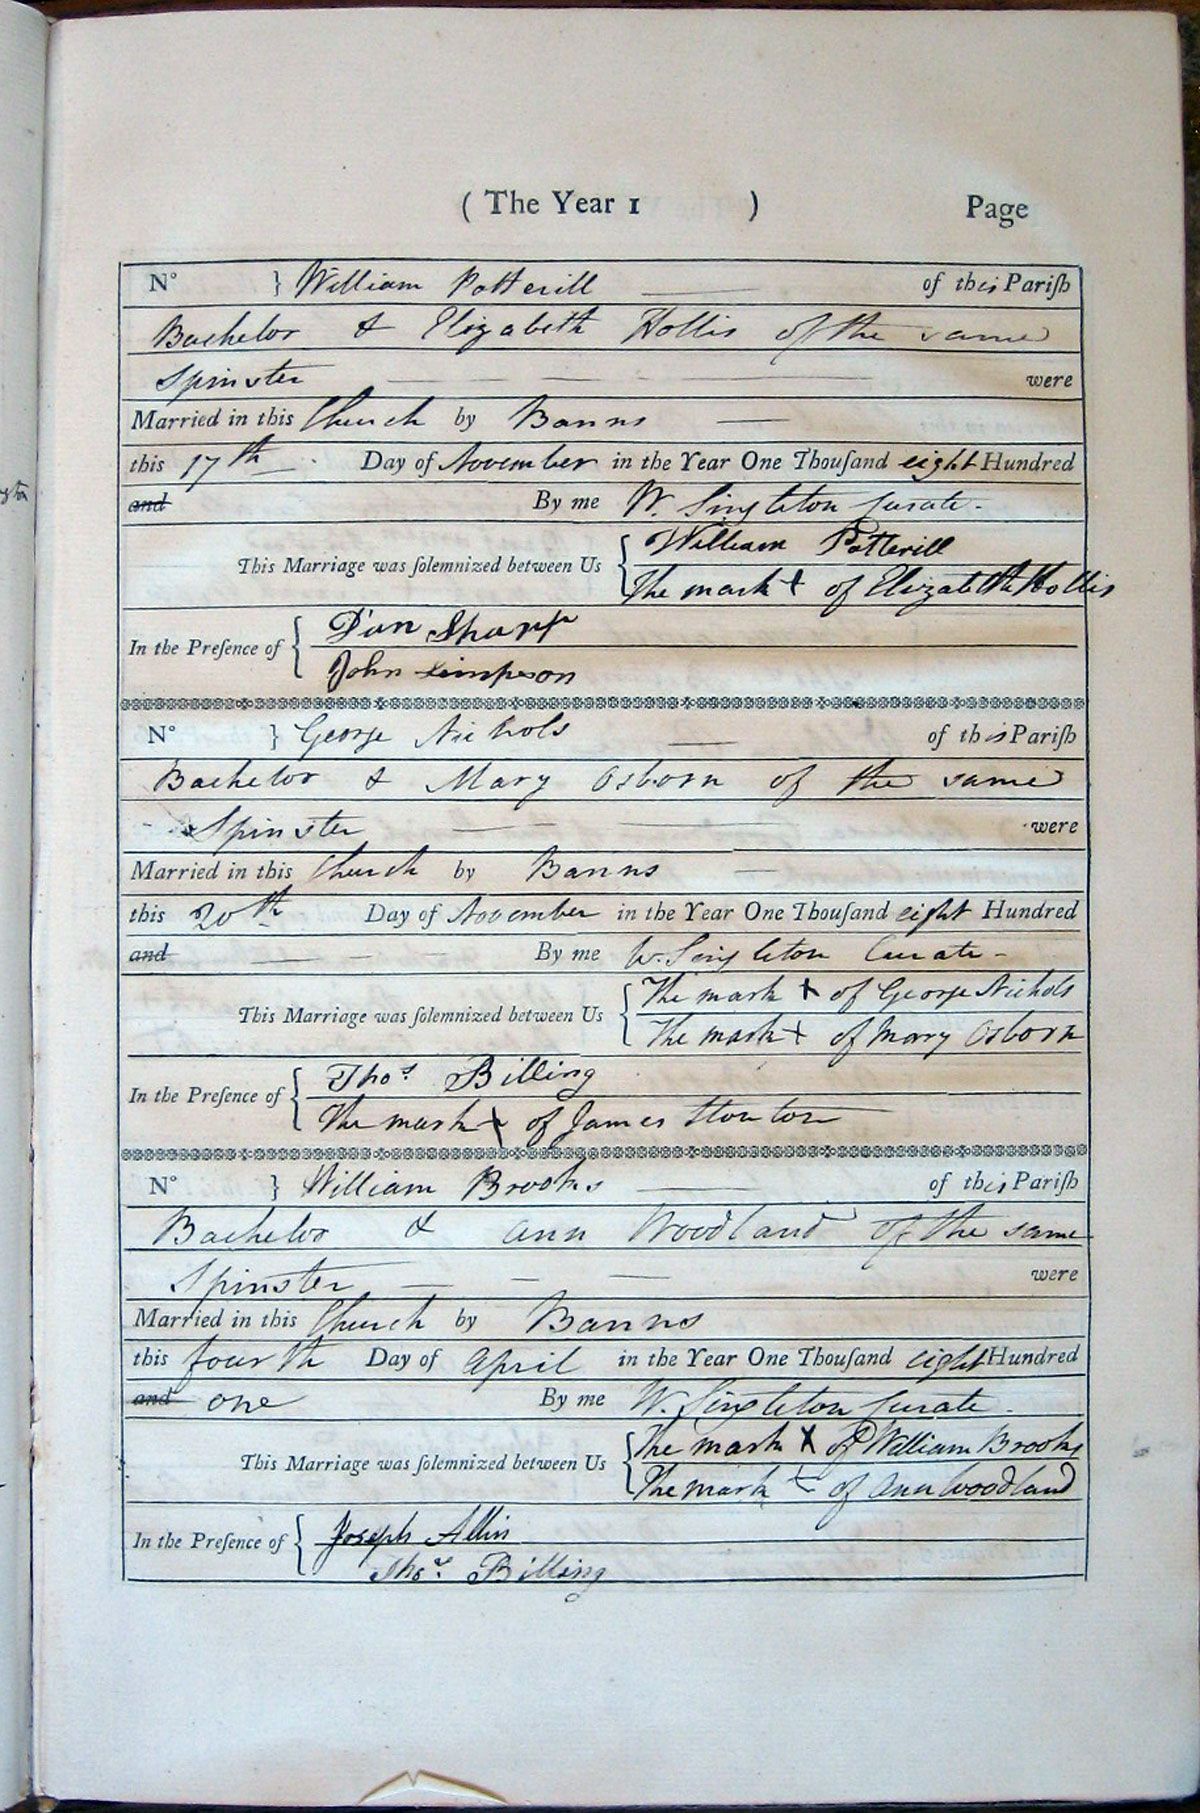 ( The Year 1 ) Page
N° } William Potterill of this Pariſh
Bachelor & Elizabeth Hollis of the same
Spinster were
Married in this Church by Banns
this 17th Day of November in the Year One Thouſand eight Hundred
and By me W. Singleton Curate.
This Marriage was ſolemnized between Us { William Potterill
The mark + of Elizabeth Hollis
In the Preſence of { Dan Sharp
John Simpson
N° } George Nichols of this Pariſh
Bachelor & Mary Osborn of the same
Spinster were
Married in this Church by Banns
this 20th Day of November in the Year One Thouſand eight Hundred
and By me W. Singleton Curate
This Marriage was ſolemnized between Us { The mark + of George Nichols
The mark + of Mary Osborn
In the Preſence of { Thos. Billing
The mark + of James
N° } William Brooks of this Pariſh
Bachelor & Ann Woodland of the same
Spinster were
Married in this Church by Banns
this fourth Day of April in the Year One Thouſand eight Hundred
and one By me W. Singleton Curate.
This Marriage was ſolemnized between Us { The mark X of William Brooks
The mark + of Ann Woodland
In the Preſence of { Joseph Allin
Thos. Billing